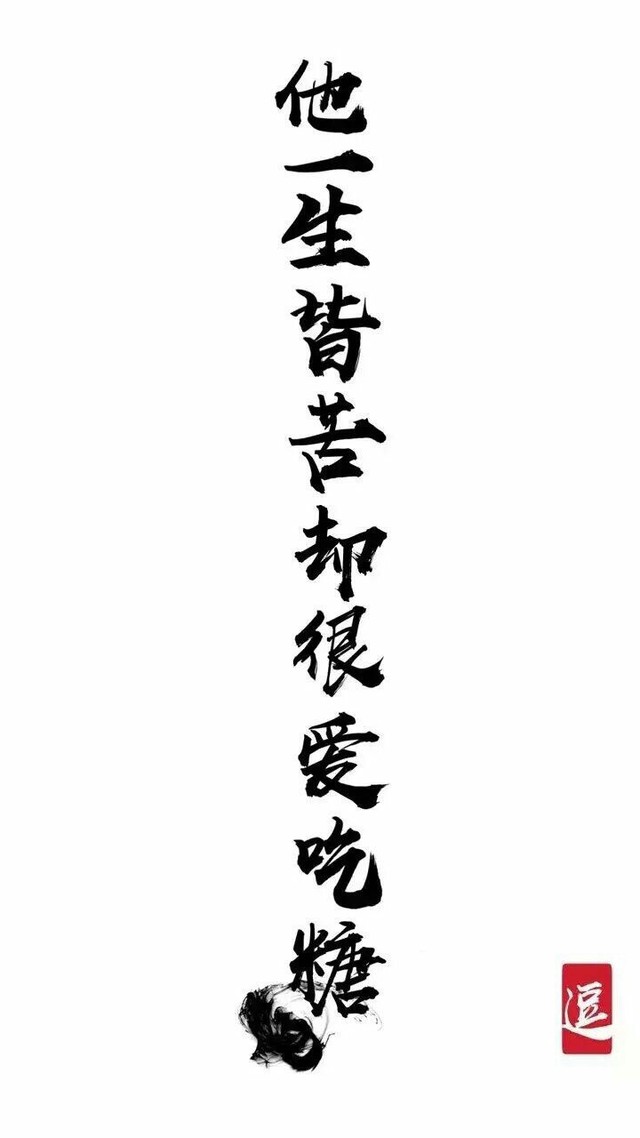 他一生皆苦却很爱吃糖
逗